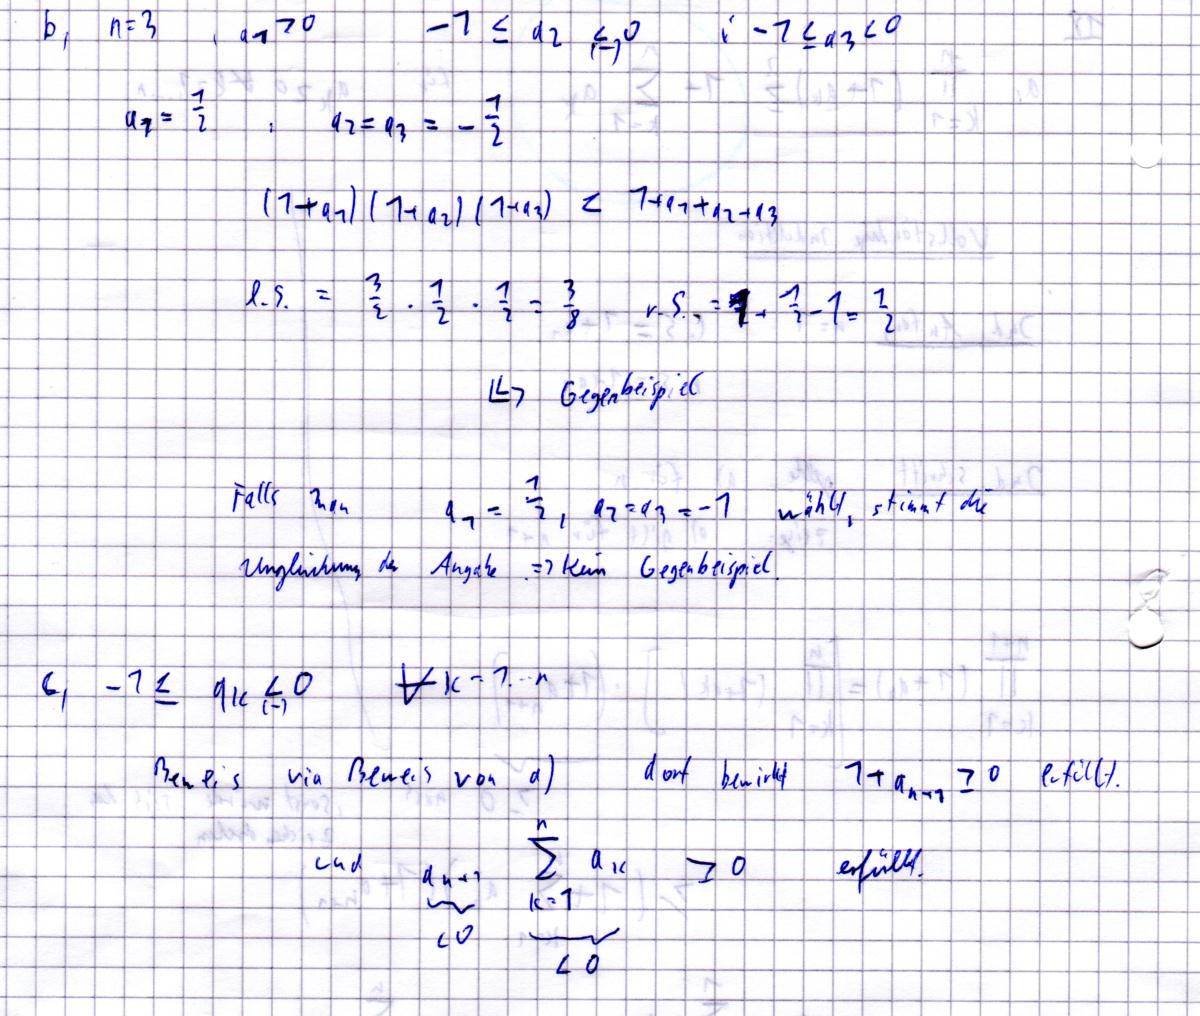 b, n=3 , a₁ ≥ 0 -1 ≤ a₂ ≤(-) 0 ; -1 ≤ a₃ < 0
a₁ = 1/2 , a₂ = a₃ = - 1/2
(1+a₁)(1+a₂)(1+a₃) < 1+a₁+a₂+a₃
l.S. = 3/2 · 1/2 · 1/2 = 3/8 r.S. = 1 + 1/2 - 1 = 1/2
↳ Gegenbeispiel
Falls man a₁ = 1/2, a₂=a₃ = -1 wählt, stimmt die
Ungleichung der Angabe => Kein Gegenbeispiel.
c, -1 ≤ aₖ <(-) 0 ∀ k = 1...n
Beweis via Beweis von a) dort bewirkt 1+aₙ₊₁ ≥ 0 erfüllt.
und aₙ₊₁ ∑ₖ₌₁ⁿ aₖ ≥ 0 erfüllt.
<0 <0